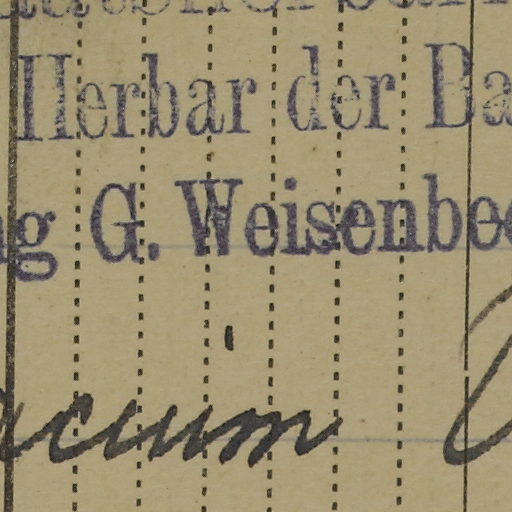 Herbar der Ba
ng G. Weisenbec
acium